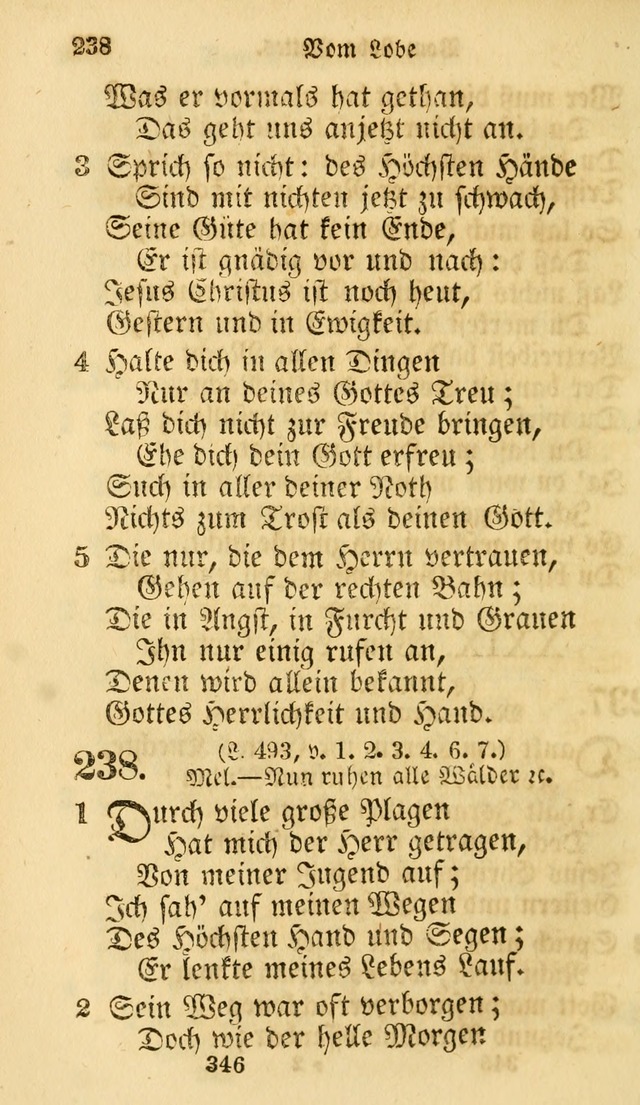 238 Vom Lobe
Was er vormals hat gethan,
Das geht uns anjetzt nicht an.
3 Sprich so nicht: des Höchsten Hände
Sind mit nichten jetzt zu schwach,
Seine Güte hat kein Ende,
Er ist gnädig vor und nach:
Jesus Christus ist noch heut,
Gestern und in Ewigkeit.
4 Halte dich in allen Dingen
Nur an deines Gottes Treu;
Laß dich nicht zur Freude bringen,
Ehe dich dein Gott erfreu;
Such in aller deiner Noth
Nichts zum Trost als deinen Gott.
5 Die nur, die dem Herrn vertrauen,
Gehen auf der rechten Bahn;
Die in Angst, in Furcht und Grauen
Ihn nur einig rufen an,
Denen wird allein bekannt,
Gottes Herrlichkeit und Hand.
238. (L. 493, v. 1. 2. 3. 4. 6. 7.)
Mel.—Nun ruhen alle Wälder ꝛc.
1 Durch viele große Plagen
Hat mich der Herr getragen,
Von meiner Jugend auf;
Ich sah' auf meinen Wegen
Des Höchsten Hand und Segen;
Er lenkte meines Lebens Lauf.
2 Sein Weg war oft verborgen;
Doch wie der helle Morgen
346